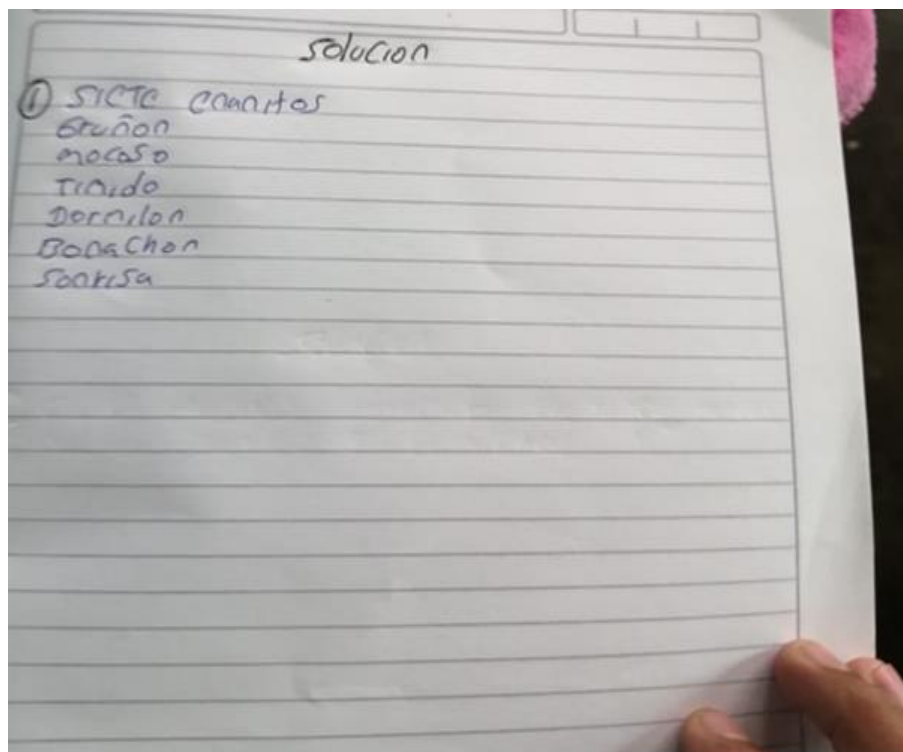 solucion
① SIETE enanitos
Gruñon
mocoso
Timido
Dormilon
Bonachon
Sonrisa